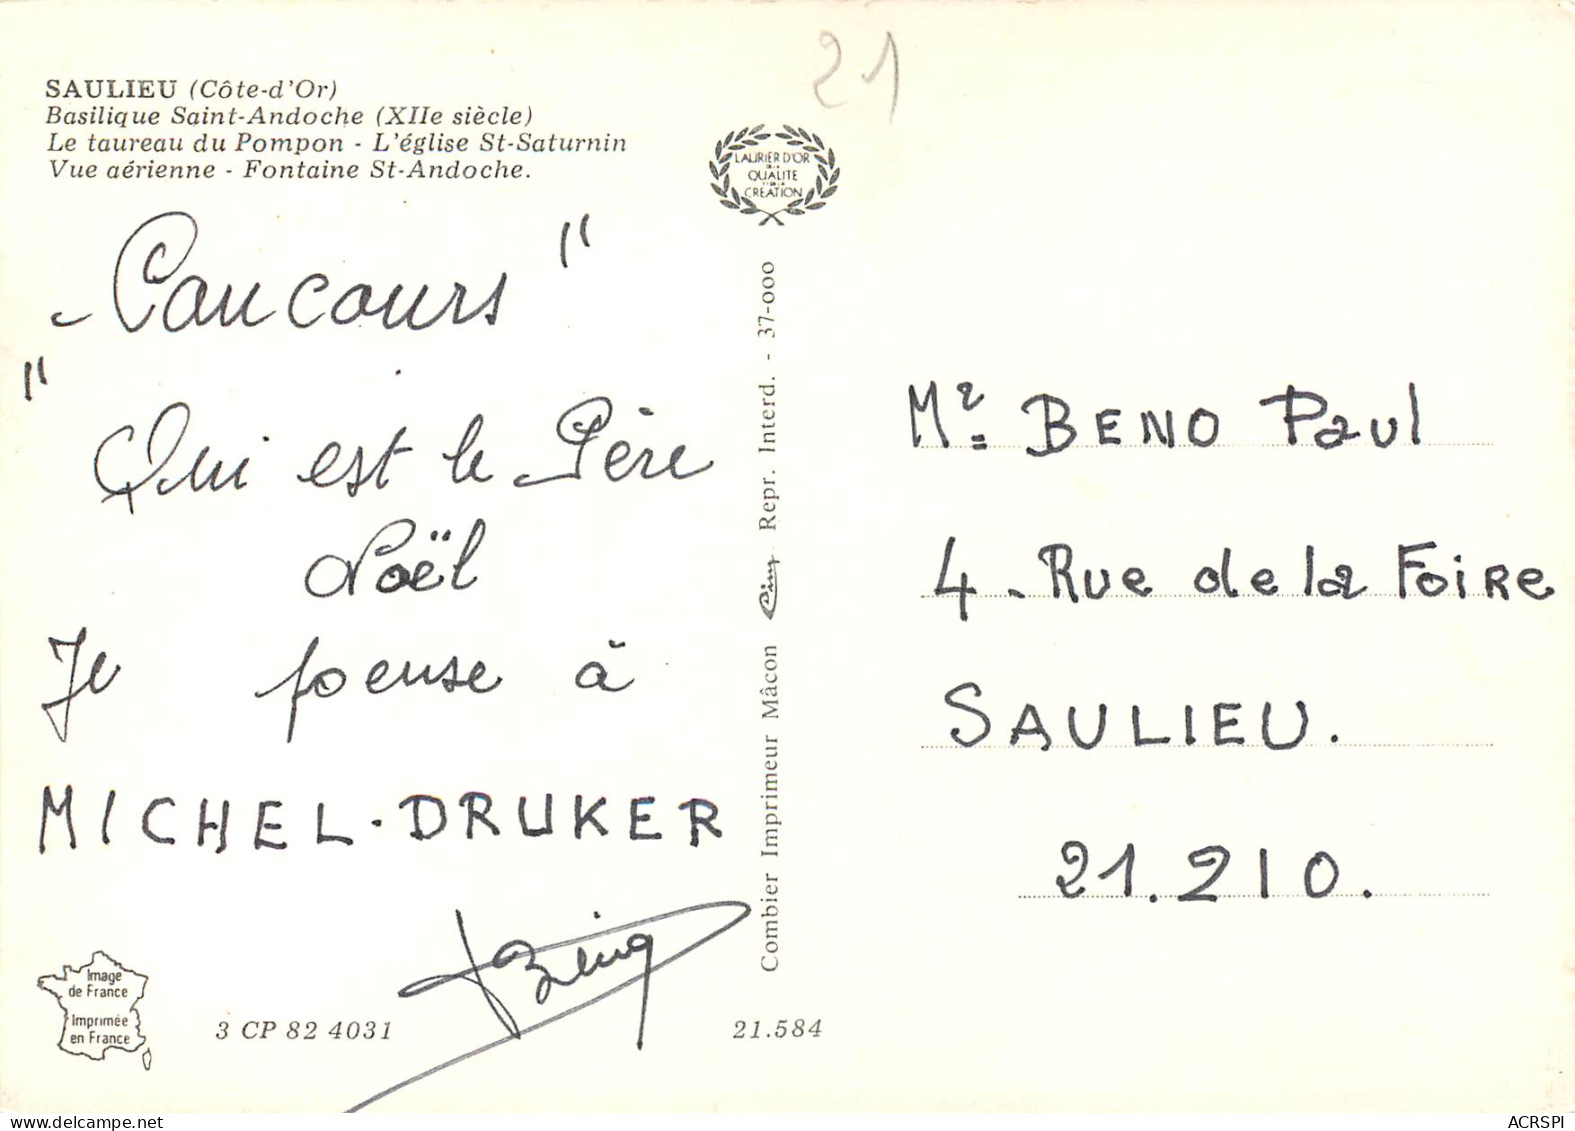 21
SAULIEU (Côte-d'Or)
Basilique Saint-Andoche (XIIe siècle)
Le taureau du Pompon - L'église St-Saturnin
Vue aérienne - Fontaine St-Andoche.
LAURIER D'OR
DE LA
QUALITE
ET DE LA
CREATION
- Concours "
" Qui est le Père
Noël
Je pense à
MICHEL-DRUKER
Image
de France
Imprimée
en France
3 CP 82 4031
21.584
Combier Imprimeur Mâcon Cim Repr. Interd. - 37-000
Mr BENO Paul
4 - Rue de la Foire
SAULIEU.
21.210.
ACRSPI